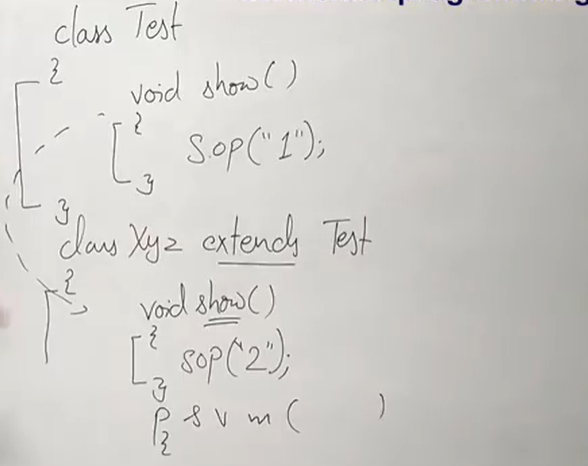 class Test
{
void show()
{
S.op("1");
}
}
class Xyz extends Test
{
void show()
{
sop("2");
}
p s v m (          )
{